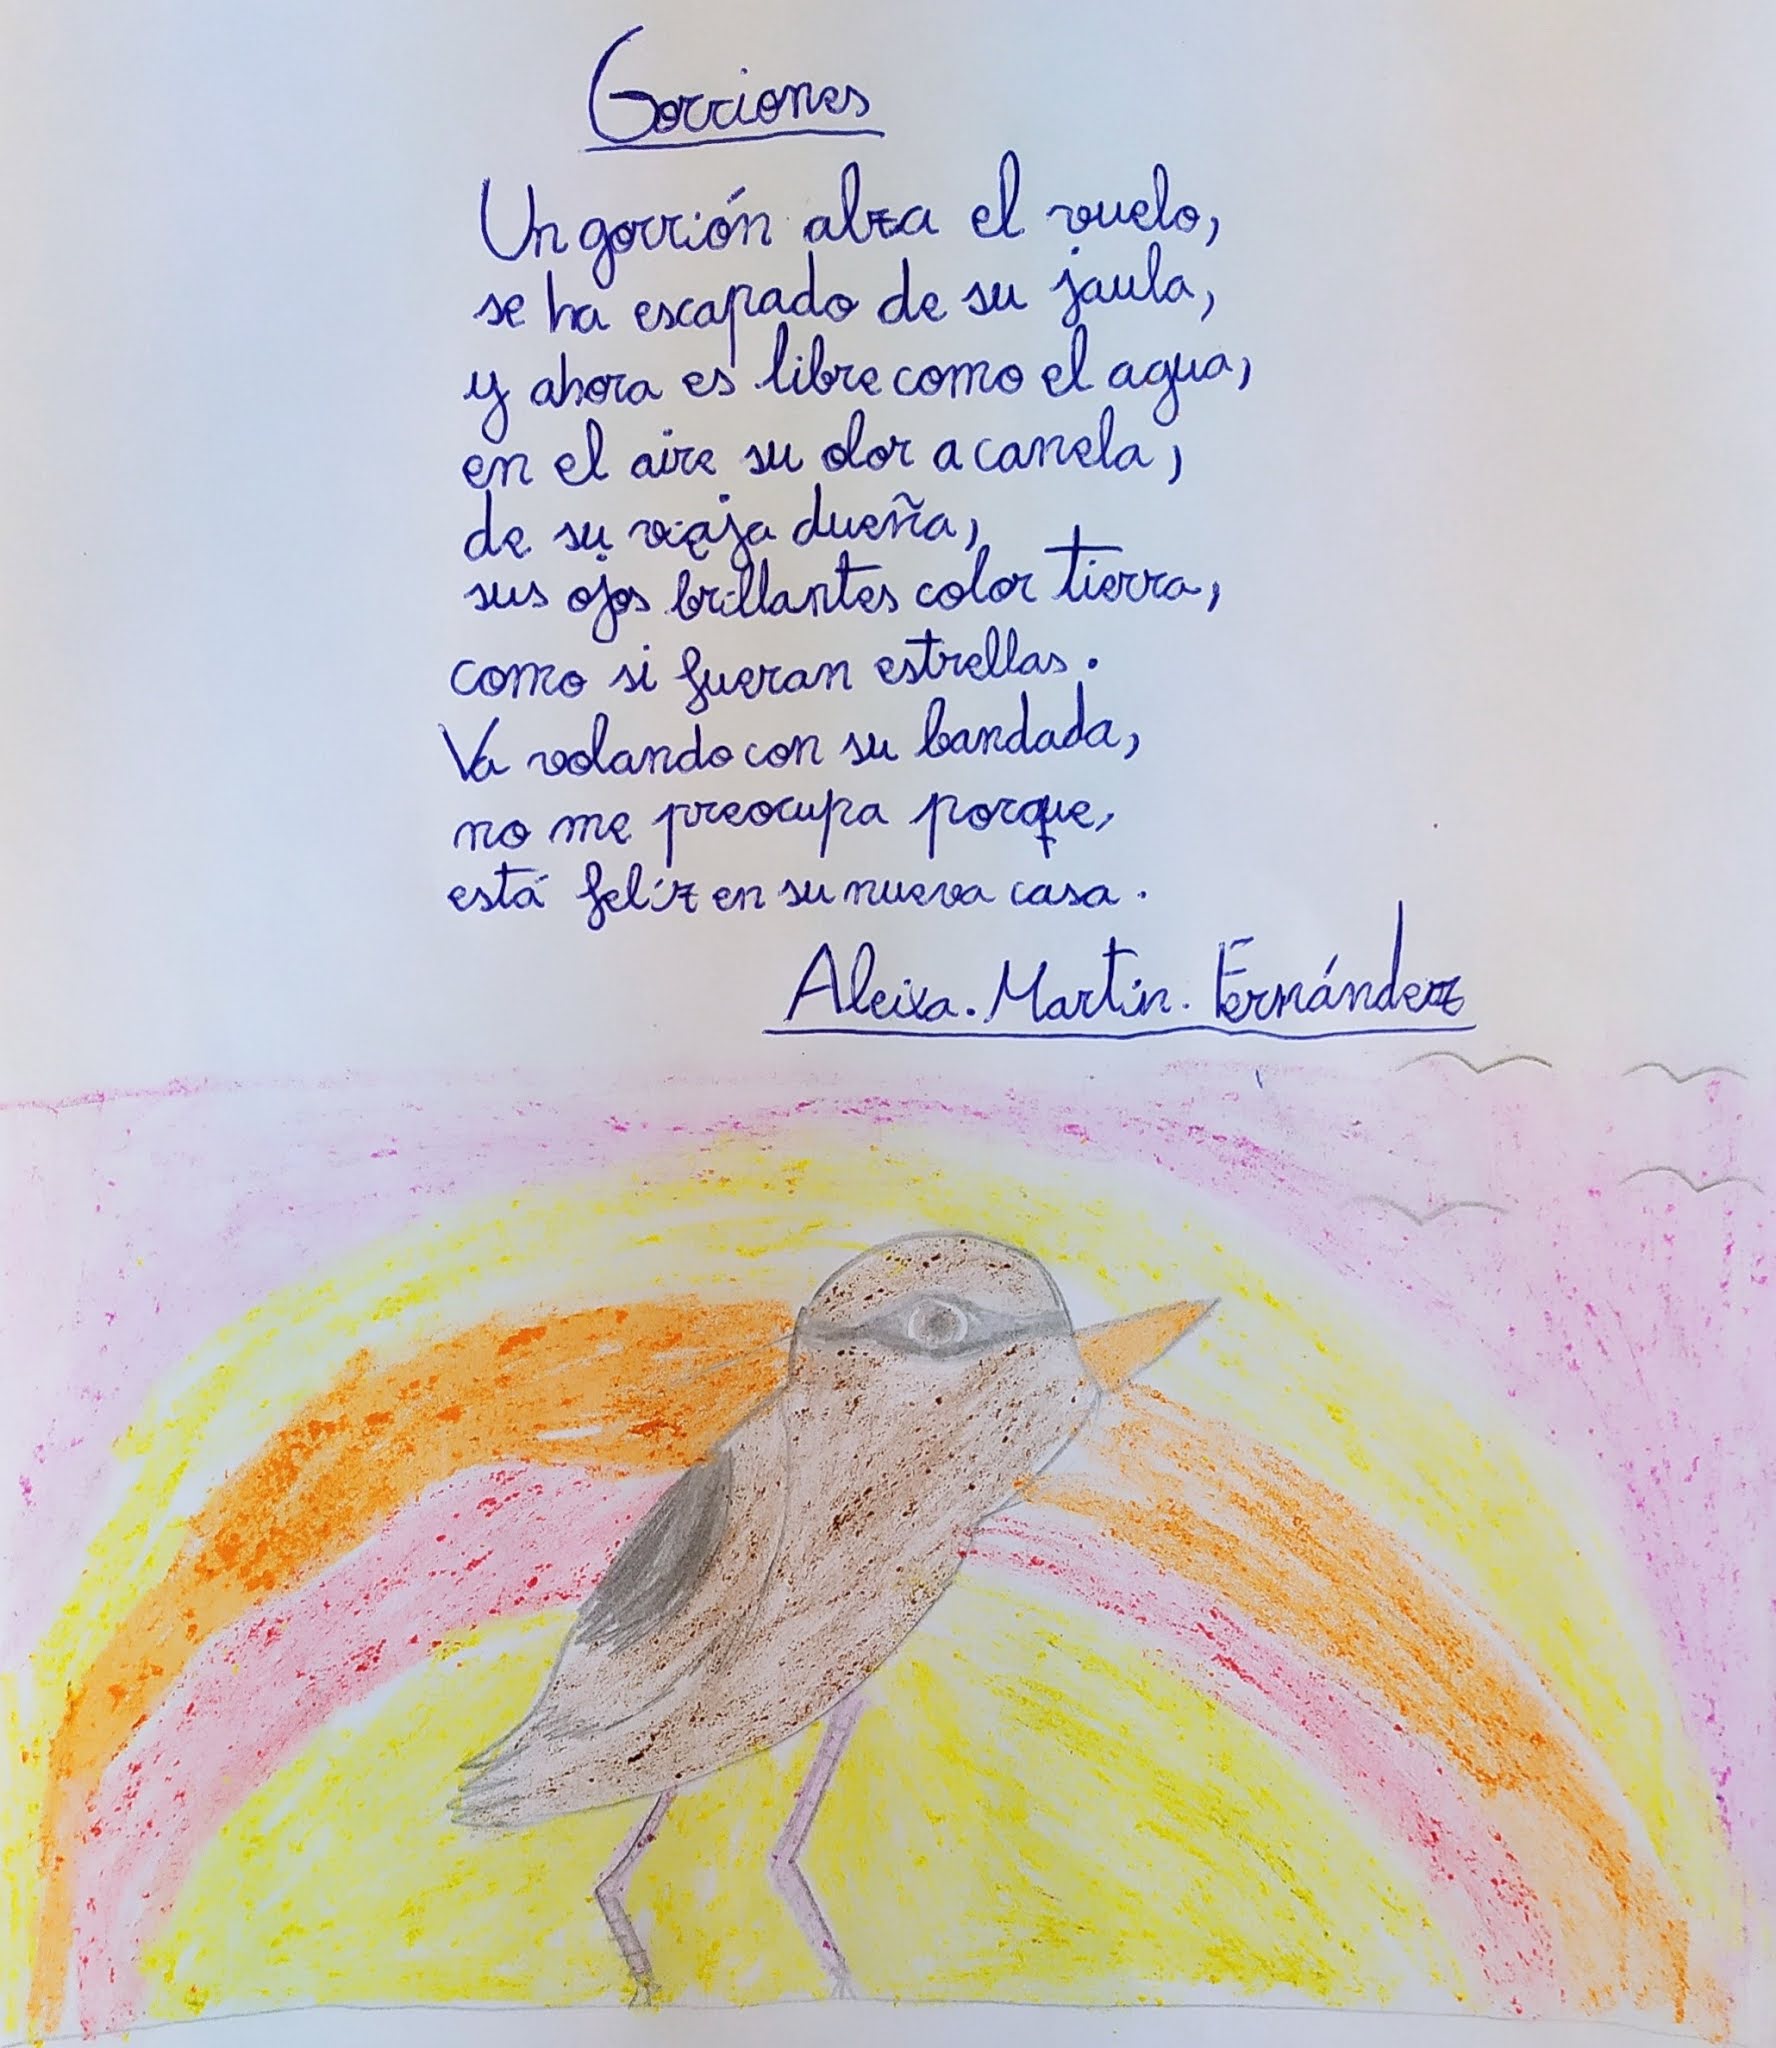 Gorriones
Un gorrión alza el vuelo,
se ha escapado de su jaula,
y ahora es libre como el agua,
en el aire su olor a canela,
de su vieja dueña,
sus ojos brillantes color tierra,
como si fueran estrellas.
Va volando con su bandada,
no me preocupa porque,
está felíz en su nueva casa.
Aleixa. Martín. Fernández